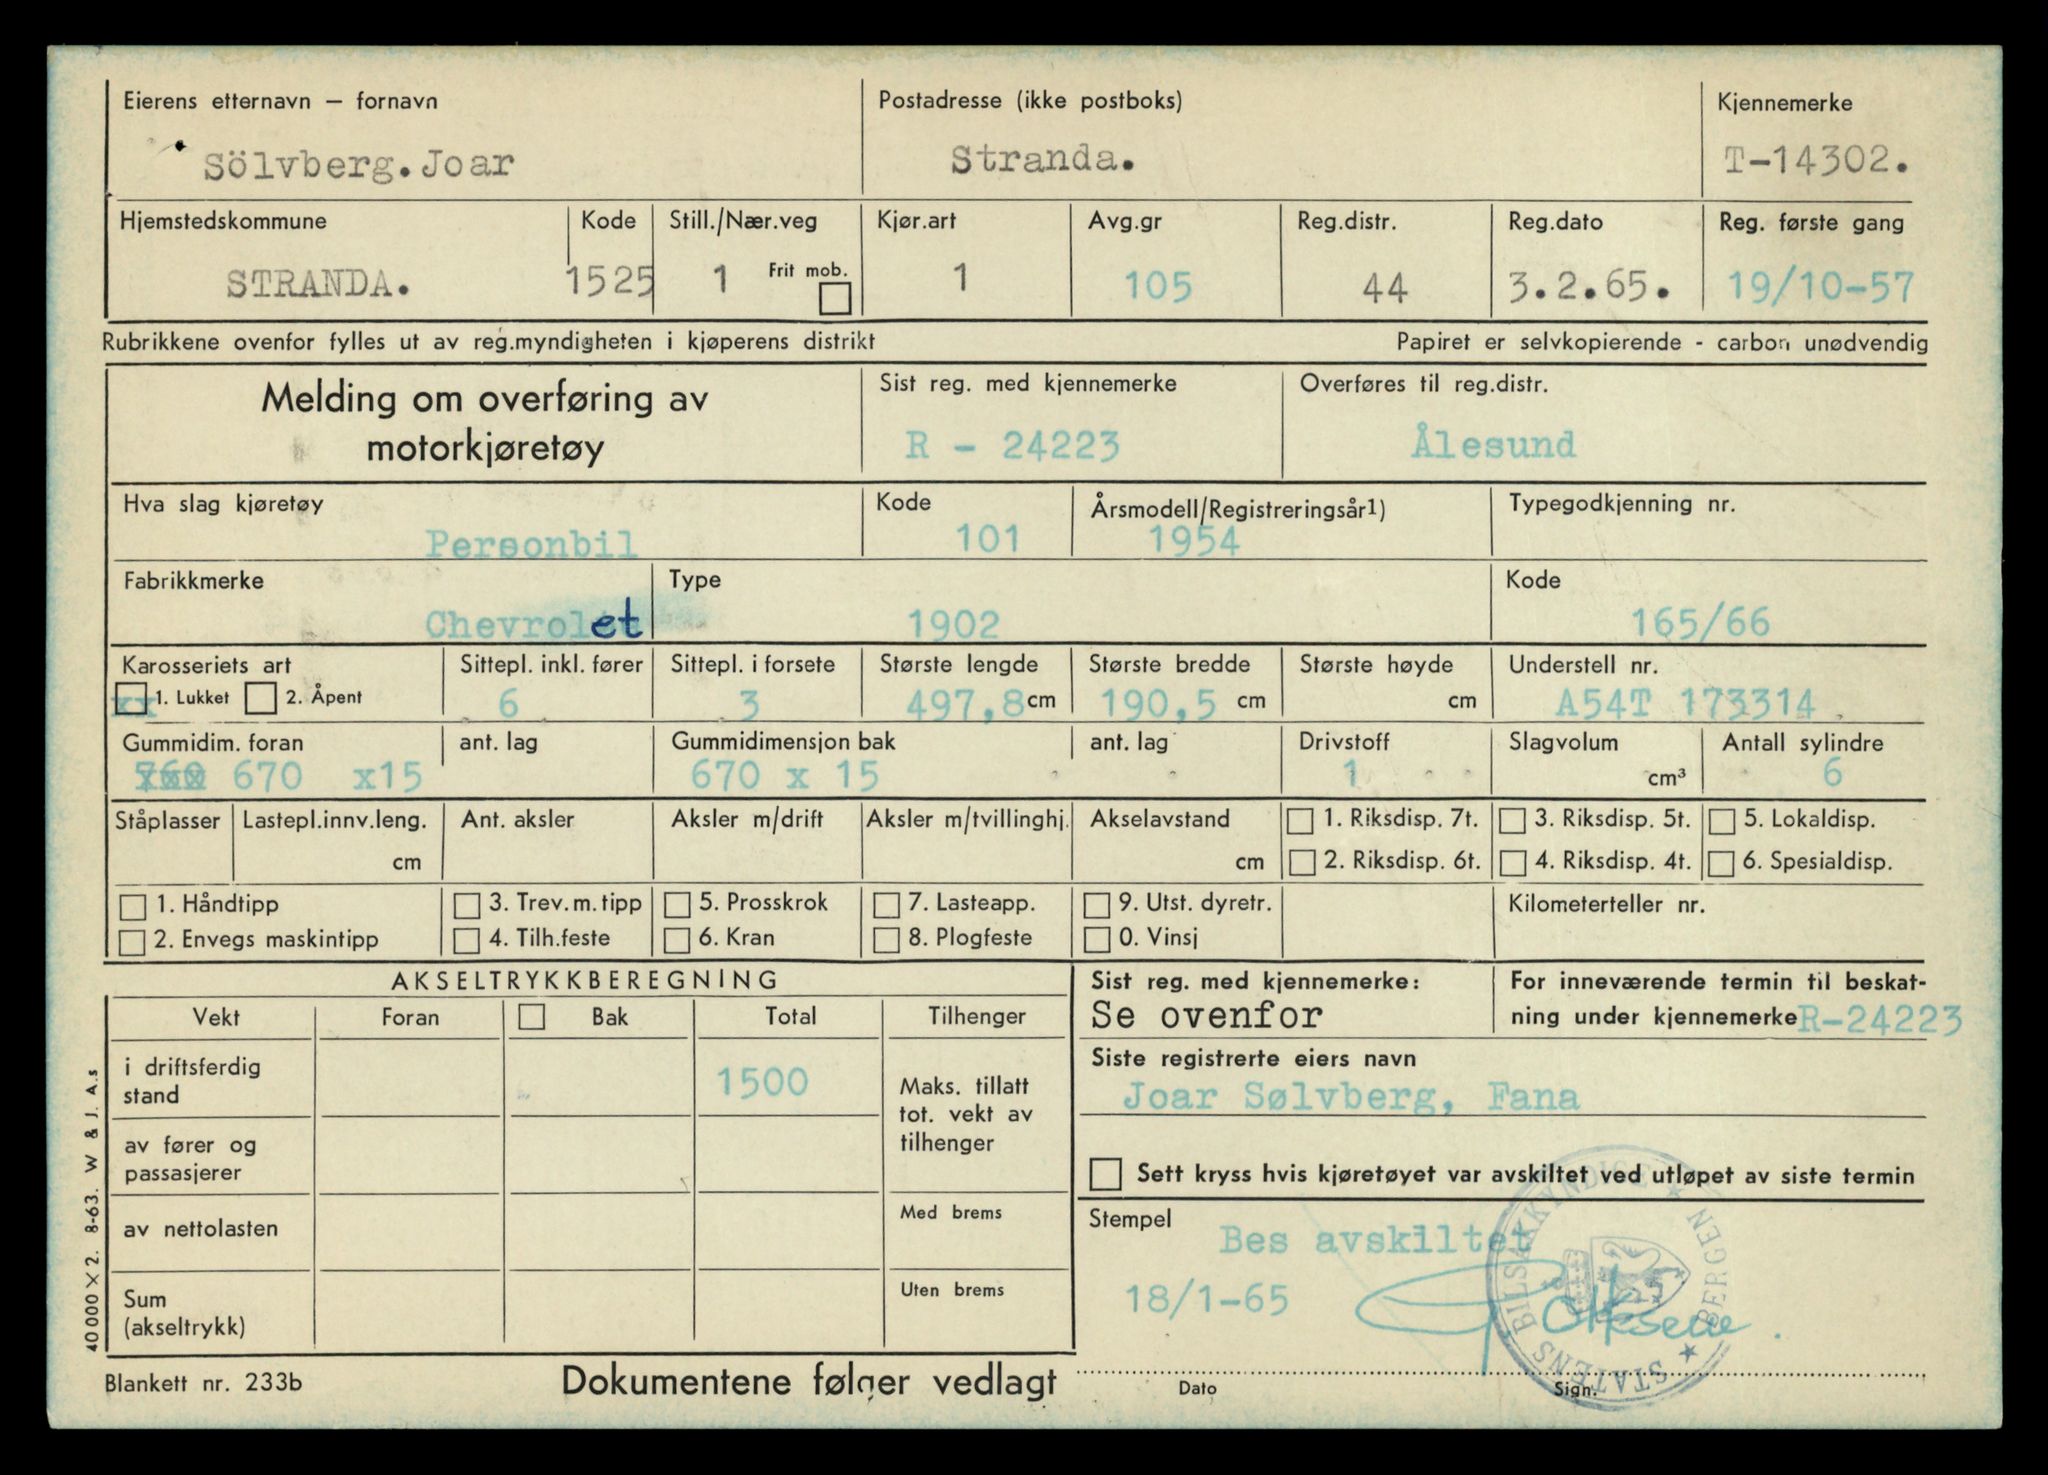 Eierens etternavn – fornavn
Sölvberg.Joar
Postadresse (ikke postboks)
Stranda.
Kjennemerke
T-14302.
Hjemstedskommune
STRANDA.
Kode
1525
Still./Nær.veg
1 Frit mob.
Kjør.art
1
Avg.gr
105
Reg.distr.
44
Reg.dato
3.2.65.
Reg. første gang
19/10-57
Rubrikkene ovenfor fylles ut av reg.myndigheten i kjøperens distrikt
Papiret er selvkopierende - carbon unødvendig
Melding om overføring av
motorkjøretøy
Sist reg. med kjennemerke
R - 24223
Overføres til reg.distr.
Ålesund
Hva slag kjøretøy
Personbil
Kode
101
Årsmodell/Registreringsår1)
1954
Typegodkjenning nr.
Fabrikkmerke
Chevrolet
Type
1902
Kode
165/66
Karosseriets art
xx 1. Lukket 2. Åpent
Sittepl. inkl. fører
6
Sittepl. i forsete
3
Største lengde
497,8 cm
Største bredde
190,5 cm
Største høyde
cm
Understell nr.
A54T 173314
Gummidim. foran
760 670 x15
ant. lag
Gummidimensjon bak
670 x 15
ant. lag
Drivstoff
1
Slagvolum
cm³
Antall sylindre
6
Ståplasser
Lastepl.innv.leng.
cm
Ant. aksler
Aksler m/drift
Aksler m/tvillinghj.
Akselavstand
cm
1. Riksdisp. 7t. 3. Riksdisp. 5t. 5. Lokaldisp.
2. Riksdisp. 6t. 4. Riksdisp. 4t. 6. Spesialdisp.
1. Håndtipp 3. Trev.m.tipp 5. Prosskrok 7. Lasteapp. 9. Utst. dyretr.
2. Envegs maskintipp 4. Tilh.feste 6. Kran 8. Plogfeste 0. Vinsj
Kilometerteller nr.
AKSELTRYKKBEREGNING
Vekt Foran Bak Total Tilhenger
i driftsferdig
stand
1500
Maks. tillatt
tot. vekt av
tilhenger
av fører og
passasjerer
av nettolasten
Med brems
Sum
(akseltrykk)
Uten brems
Sist reg. med kjennemerke:
Se ovenfor
For inneværende termin til beskat-
ning under kjennemerke R-24223
Siste registrerte eiers navn
Joar Sølvberg, Fana
Sett kryss hvis kjøretøyet var avskiltet ved utløpet av siste termin
Stempel
Bes avskiltet
18/1-65
STATENS BILSAKKYNDIGE ★ BERGEN ★
Dato
Sign.
40 000 × 2. 8-63. W & J. A.s
Blankett nr. 233b
Dokumentene følger vedlagt